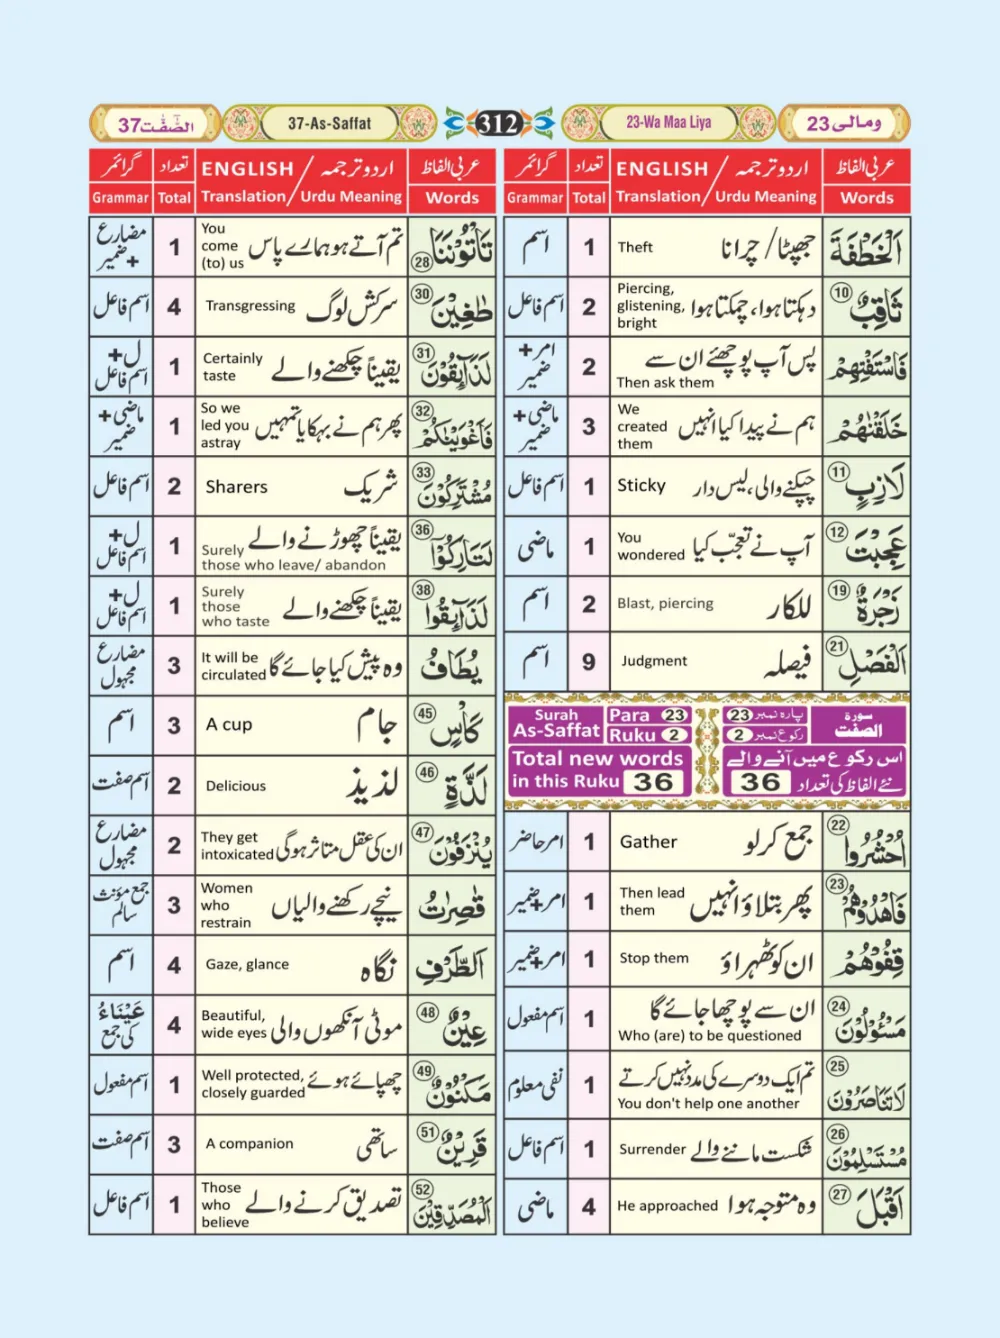 الصّٰفّٰت37
37-As-Saffat
312
23-Wa Maa Liya
ومالی23
عربی الفاظ
اردو ترجمہ / ENGLISH
تعداد
گرائمر
Words
Translation/ Urdu Meaning
Total
Grammar
اَلْخَطْفَةَ
جھپٹا/ چرانا
Theft
1
اسم
ثَاقِبٌ
10
دہکتا ہوا، چمکتا ہوا
Piercing,
glistening,
bright
2
اسم فاعل
فَاسْتَفْتِهِمْ
پس آپ پوچھئے ان سے
Then ask them
2
امر+
ضمیر
خَلَقْنٰهُمْ
ہم نے پیدا کیا انہیں
We
created
them
3
ماضی+
ضمیر
لَازِبٍ
11
چپکنے والی، لیس دار
Sticky
1
اسم فاعل
عَجِبْتَ
12
آپ نے تعجّب کیا
You
wondered
1
ماضی
زَجْرَةٌ
19
للکار
Blast, piercing
2
اسم
اَلْفَصْلِ
21
فیصلہ
Judgment
9
اسم
Surah
As-Saffat
Para 23
Ruku 2
پارہ نمبر 23
رکوع نمبر 2
سورة
الصفت
Total new words
in this Ruku 36
اس رکوع میں آنے والے
نئے الفاظ کی تعداد 36
اُحْشُرُوا
22
جمع کر لو
Gather
1
امر حاضر
فَاهْدُوْهُمْ
23
پھر بتلاؤ انہیں
Then lead
them
1
امر+ضمیر
قِفُوْهُمْ
ان کو ٹھہراؤ
Stop them
1
امر+ضمیر
مَسْـُٔوْلُوْنَ
24
ان سے پوچھا جائے گا
Who (are) to be questioned
1
اسم مفعول
لَاتَنَاصَرُوْنَ
25
تم ایک دوسرے کی مدد نہیں کرتے
You don't help one another
1
نفی معلوم
مُسْتَسْلِمُوْنَ
26
شکست ماننے والے
Surrender
1
اسم فاعل
اَقْبَلَ
27
وہ متوجہ ہوا
He approached
4
ماضی
عربی الفاظ
اردو ترجمہ / ENGLISH
تعداد
گرائمر
Words
Translation/ Urdu Meaning
Total
Grammar
تَاْتُوْنَنَا
28
تم آتے ہو ہمارے پاس
You
come
(to) us
1
مضارع
+ضمیر
طٰغِيْنَ
30
سرکش لوگ
Transgressing
4
اسم فاعل
لَذَآىِٕقُوْنَ
31
یقیناً چکھنے والے
Certainly
taste
1
ل+
اسم فاعل
فَاَغْوَيْنٰكُمْ
32
پھر ہم نے بہکایا تمہیں
So we
led you
astray
1
ماضی+
ضمیر
مُشْتَرِكُوْنَ
33
شریک
Sharers
2
اسم فاعل
لَتَارِكُوْٓا
36
یقیناً چھوڑنے والے
Surely
those who leave/ abandon
1
ل+
اسم فاعل
لَذَآىِٕقُوا
38
یقیناً چکھنے والے
Surely
those
who taste
1
ل+
اسم فاعل
يُطَافُ
وہ پیش کیا جائے گا
It will be
circulated
3
مضارع
مجہول
كَاْسٍ
45
جام
A cup
3
اسم
لَذَّةٍ
46
لذیذ
Delicious
2
اسم صفت
يُنْزَفُوْنَ
47
ان کی عقل متاثر ہوگی
They get
intoxicated
2
مضارع
مجہول
قٰصِرٰتُ
نیچے رکھنے والیاں
Women
who
restrain
3
جمع مؤنث
سالم
اَلطَّرْفِ
نگاہ
Gaze, glance
4
اسم
عِيْنٌ
48
موٹی آنکھوں والی
Beautiful,
wide eyes
4
عَيْنَاءُ
کی جمع
مَكْنُوْنٌ
49
چھپائے ہوئے
Well protected,
closely guarded
1
اسم مفعول
قَرِيْنٌ
51
ساتھی
A companion
3
اسم صفت
اَلْمُصَدِّقِيْنَ
52
تصدیق کرنے والے
Those
who
believe
1
اسم فاعل